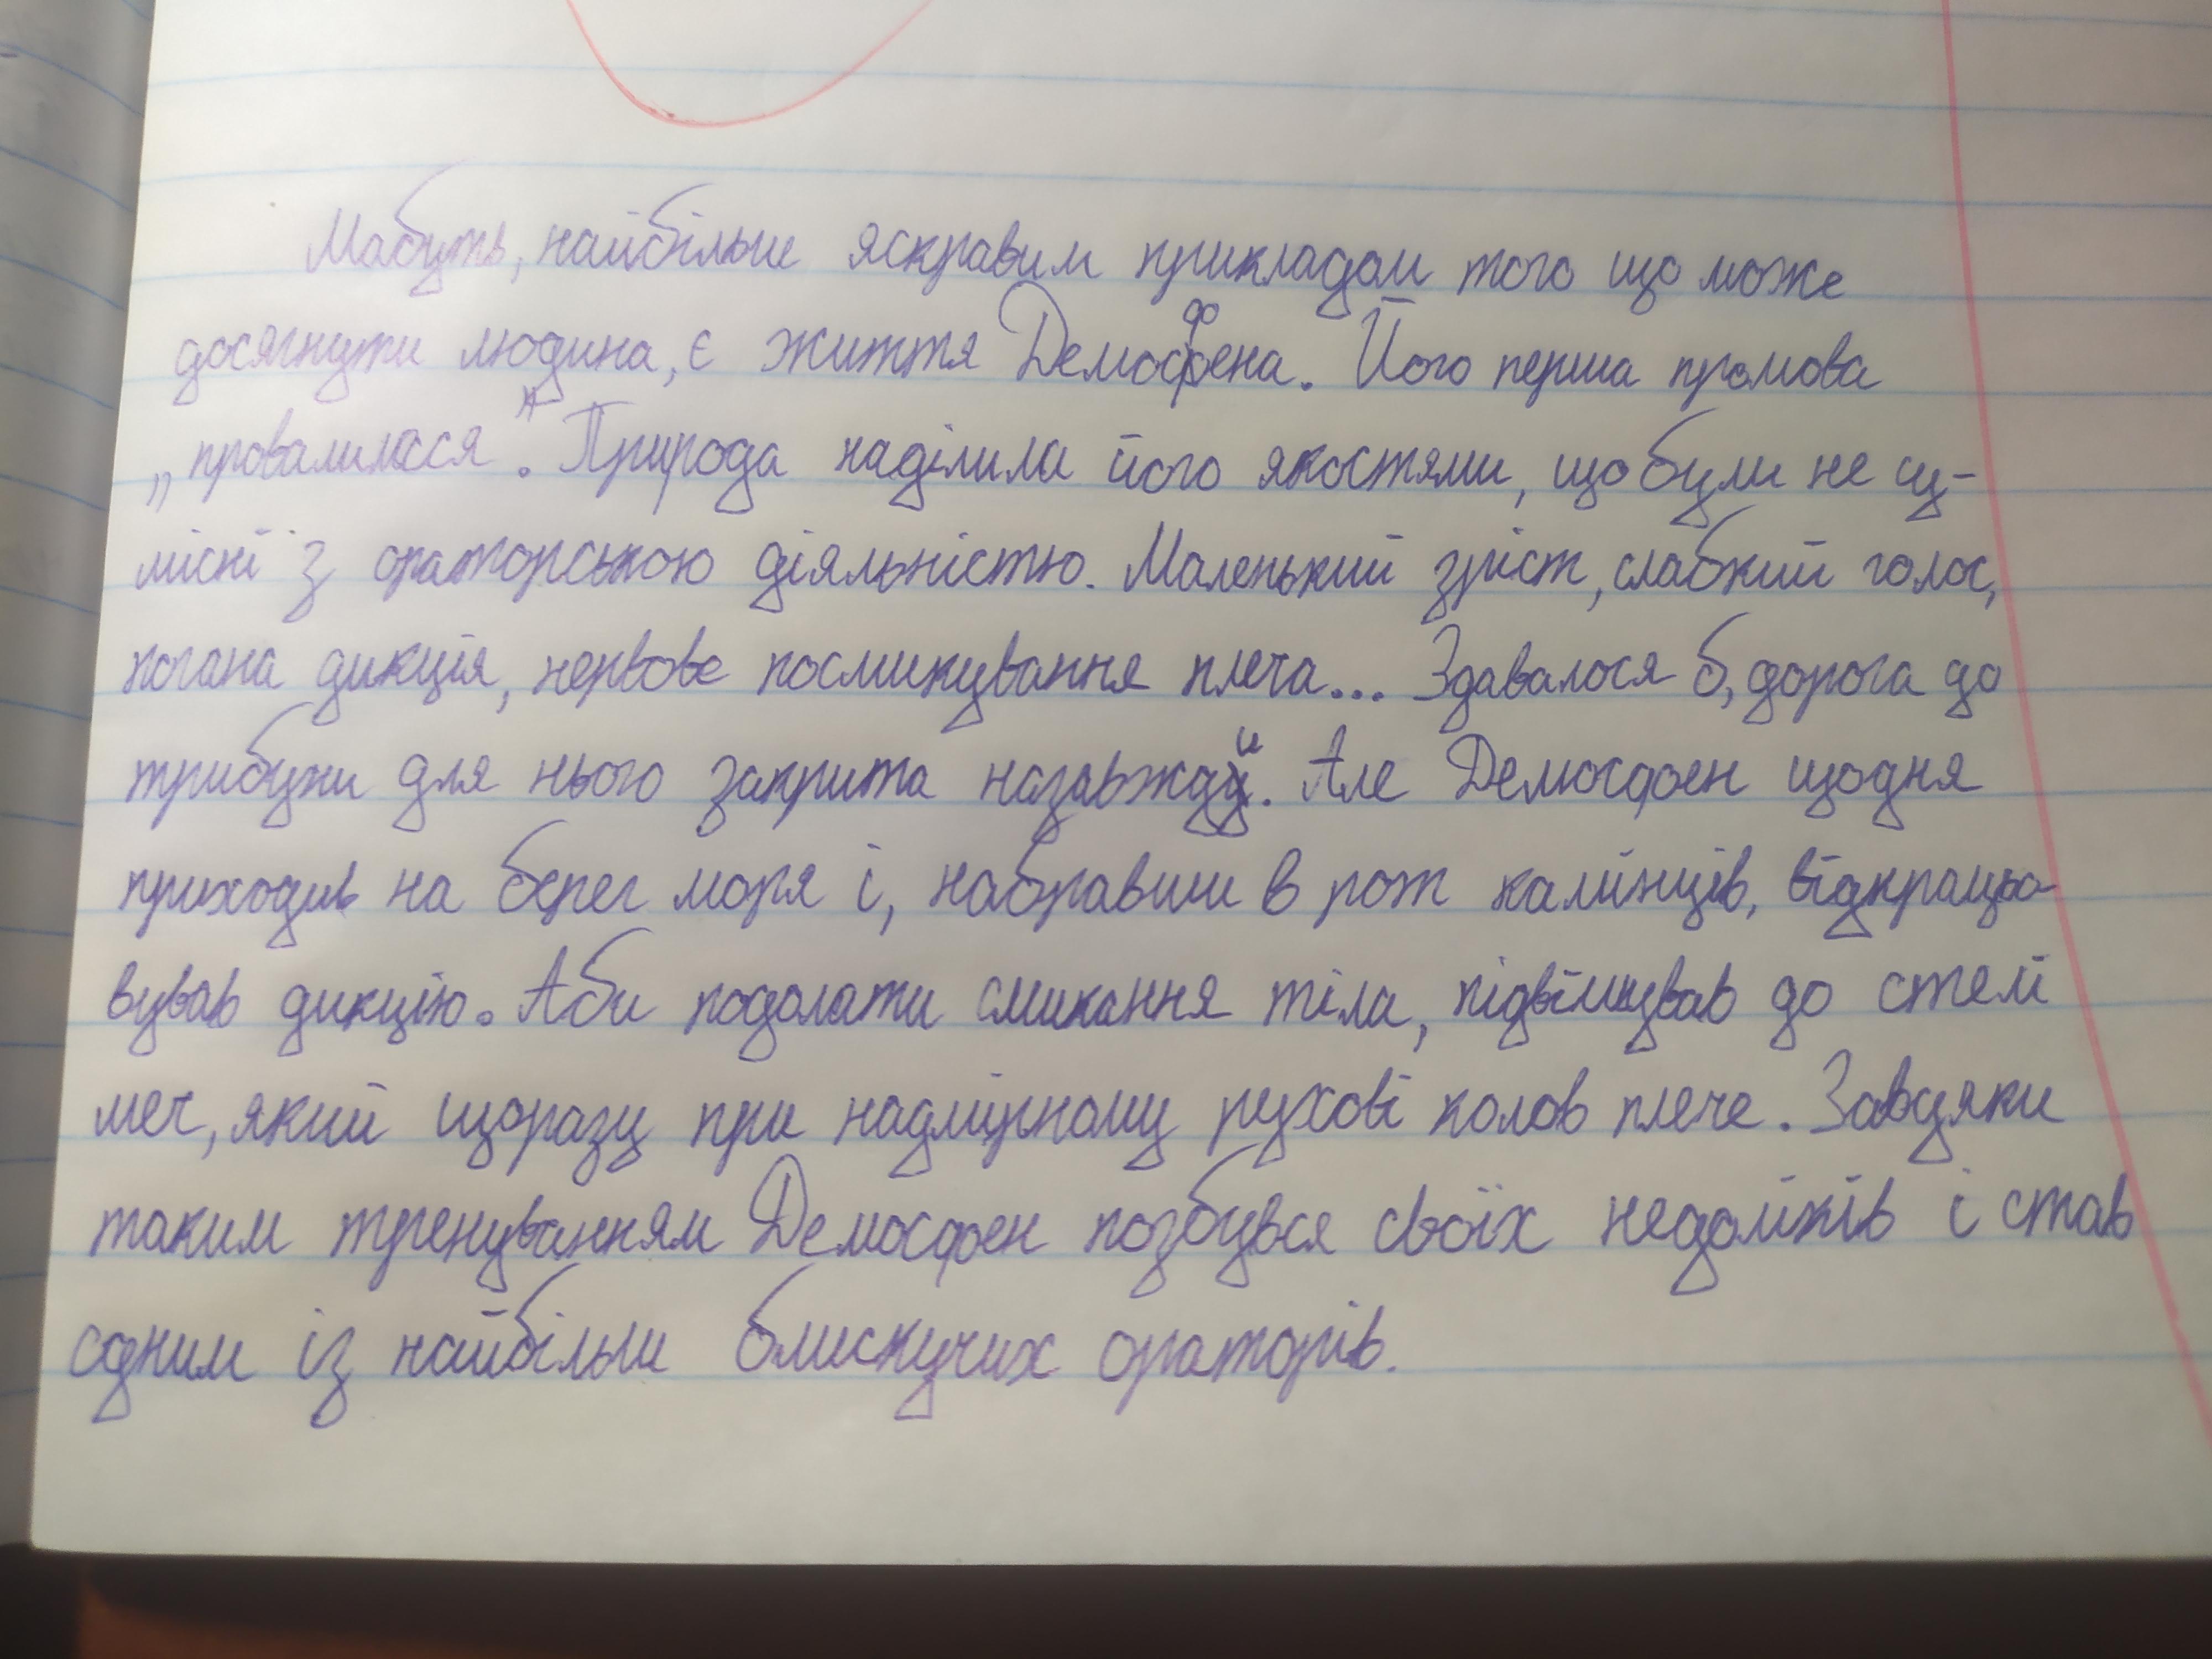 Мабуть, найбільш яскравим прикладом того що може
досягнути людина, є життя Демосфена. Його перша промова
„провалилася". Природа наділила його якостями, що були не су-
місні з ораторською діяльністю. Маленький зріст, слабкий голос,
погана дикція, нервове посмикування плеча... Здавалося б, дорога до
трибуни для нього закрита назавжди. Але Демосфен щодня
приходив на берег моря і, набравши в рот камінців, відкрацьо-
вував дикцію. Аби подолати смикання тіла, підвішував до стелі
меч, який щоразу при надмірному рухові колов плече. Завдяки
таким тренуванням Демосфен позбувся своїх недоліків і став
одним із найбільш блискучих ораторів.